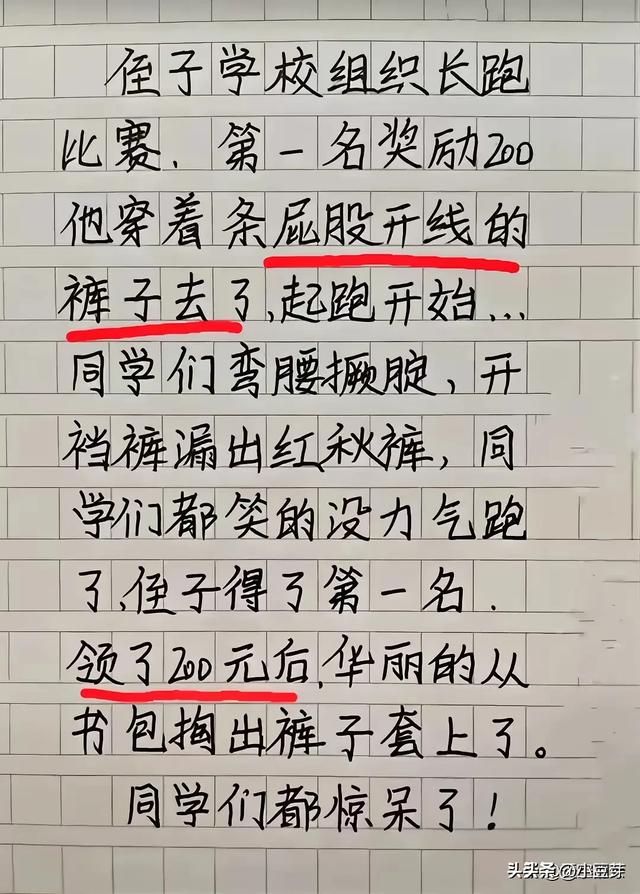 侄子学校组织长跑
比赛、第一名奖励200
他穿着条屁股开线的
裤子去了,起跑开始...
同学们弯腰撅腚，开
裆裤漏出红秋裤，同
学们都笑的没力气跑
了,侄子得了第一名.
领了200元后,华丽的从
书包掏出裤子套上了。
同学们都惊呆了！